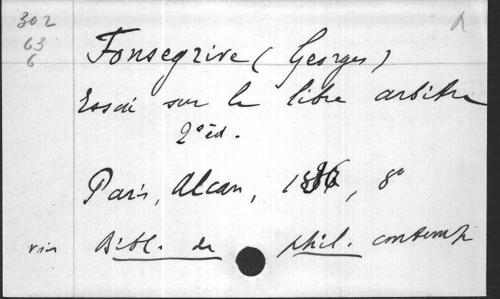 302
63
6
Fonsegrive (Georges)
Essai sur le libre arbitre
2e éd.
Paris, Alcan, 1896, 8°
Bibl. de phil. contemp